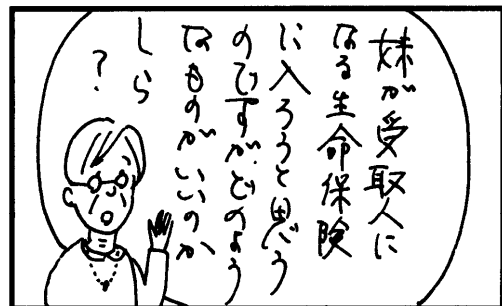 妹が受取人に
なる生命保険
に入ろうと思う
のですが、どのよう
なものがいいのか
しら
？